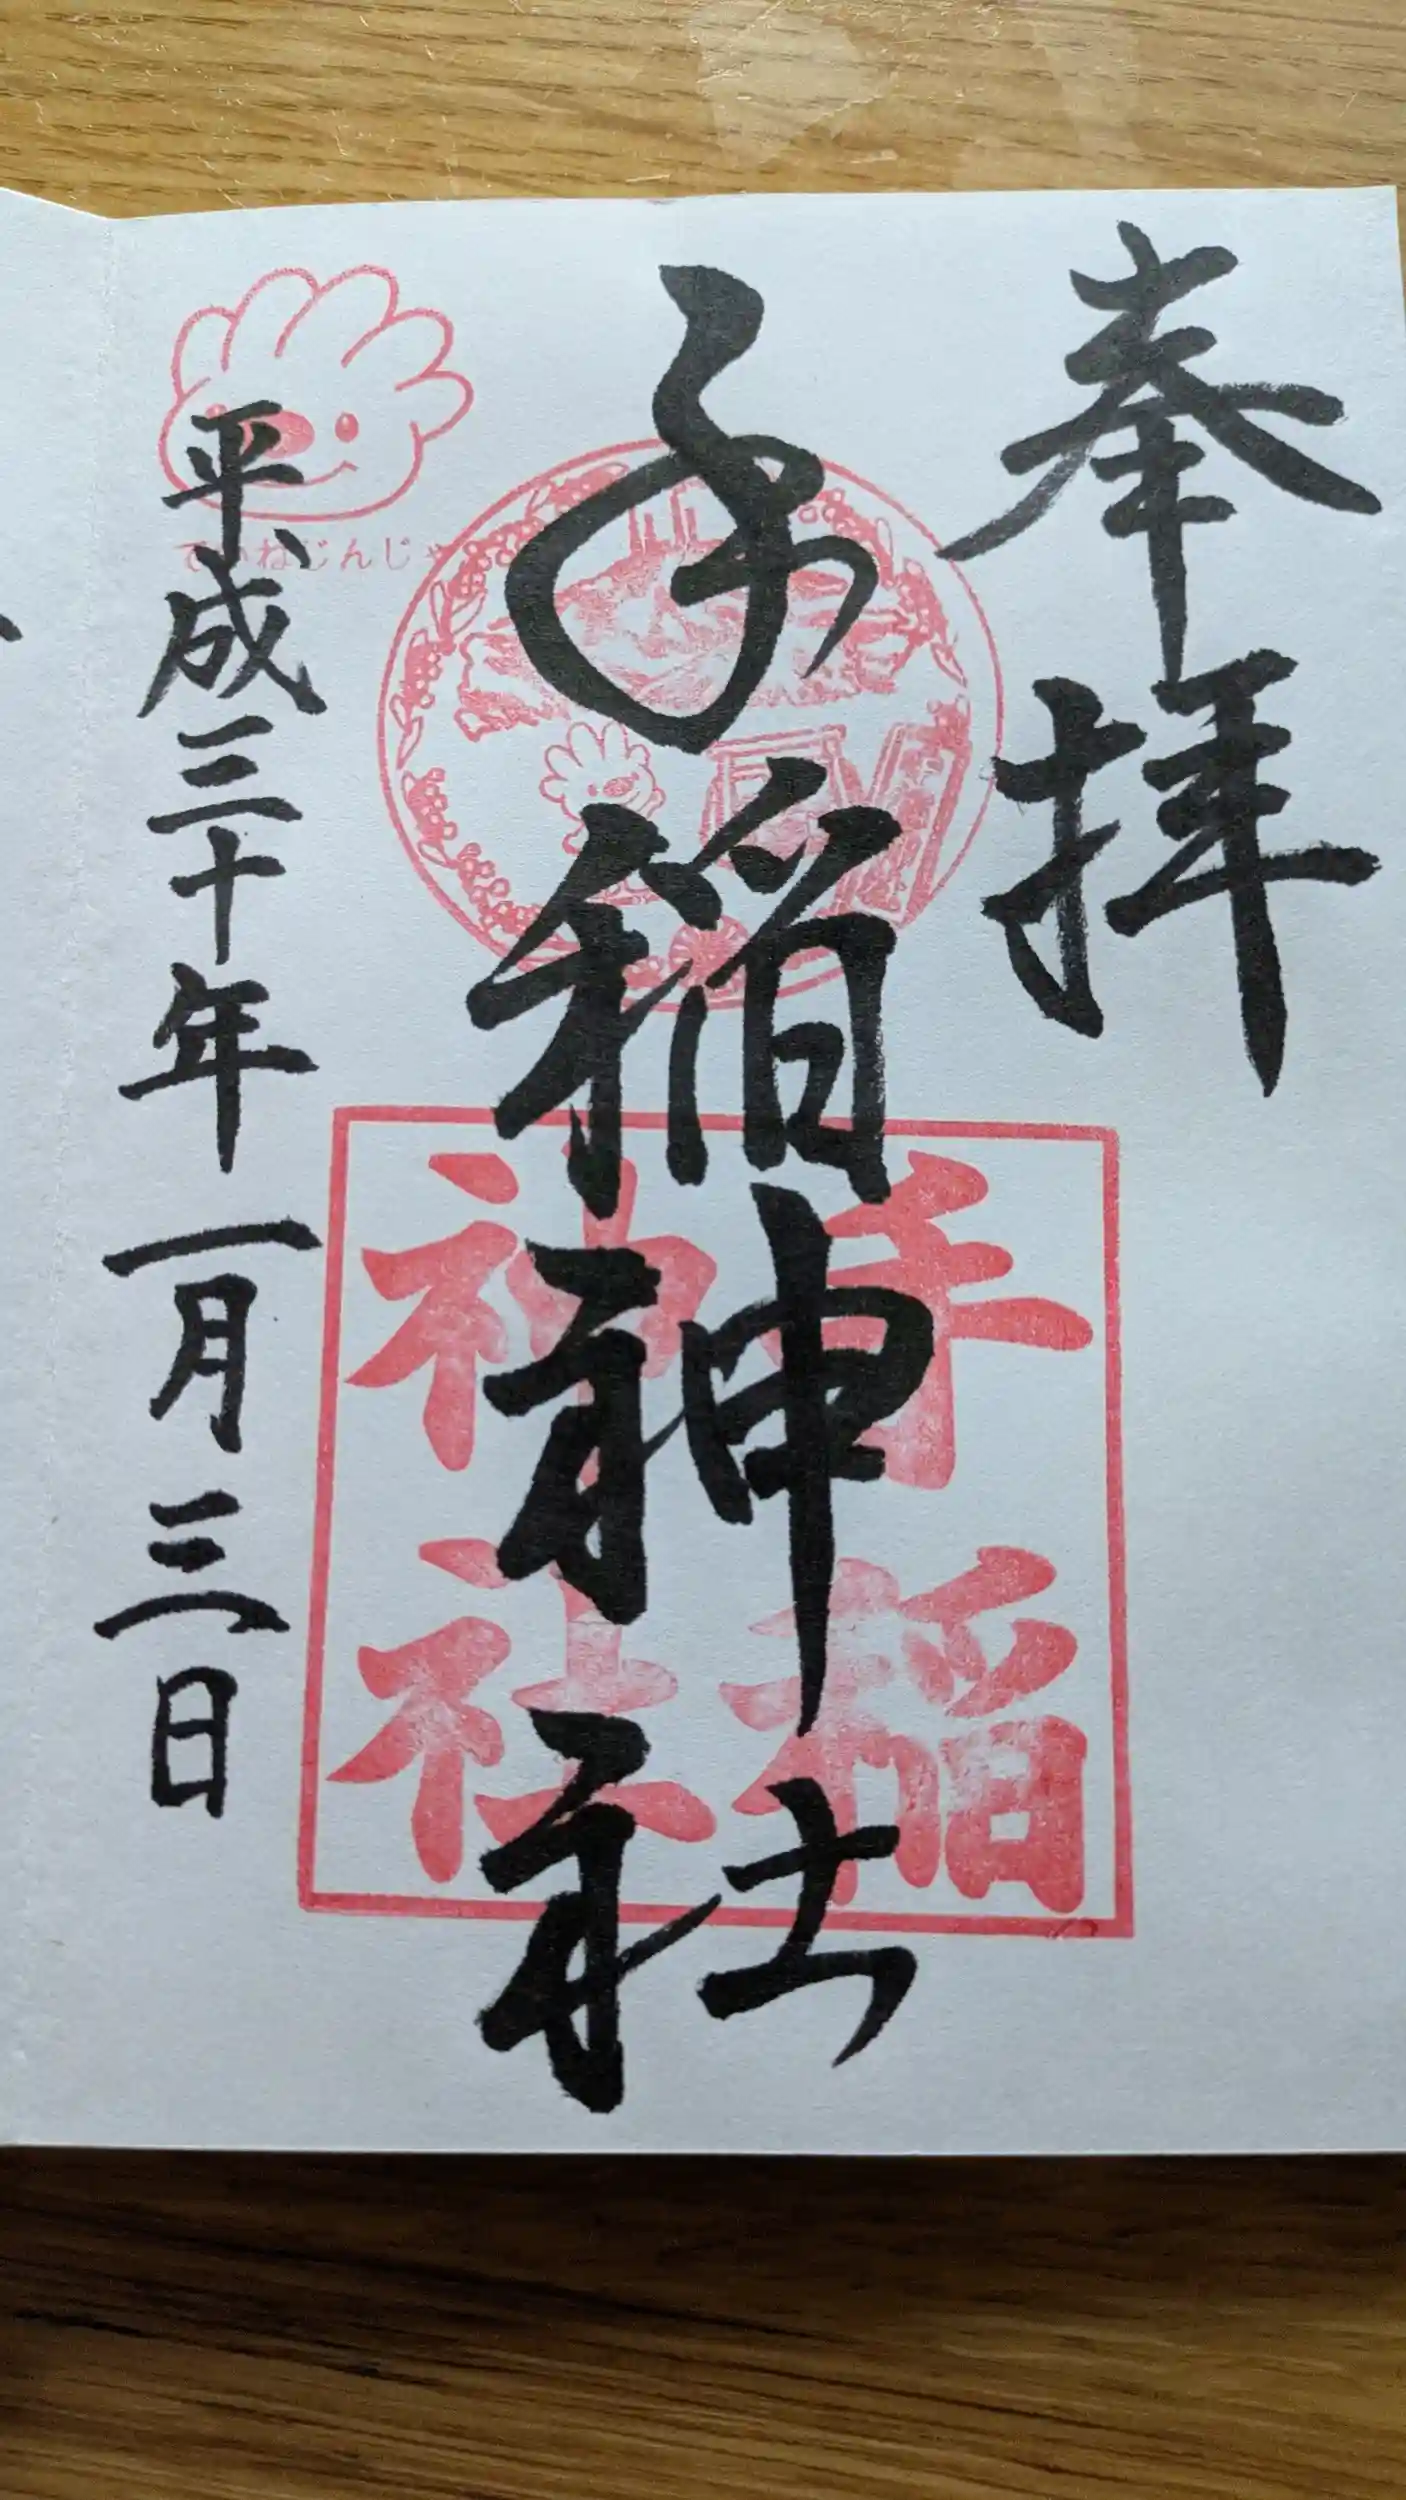 奉拝
手稲神社
手稲
神社
ていねじんじゃ
平成三十年一月三日